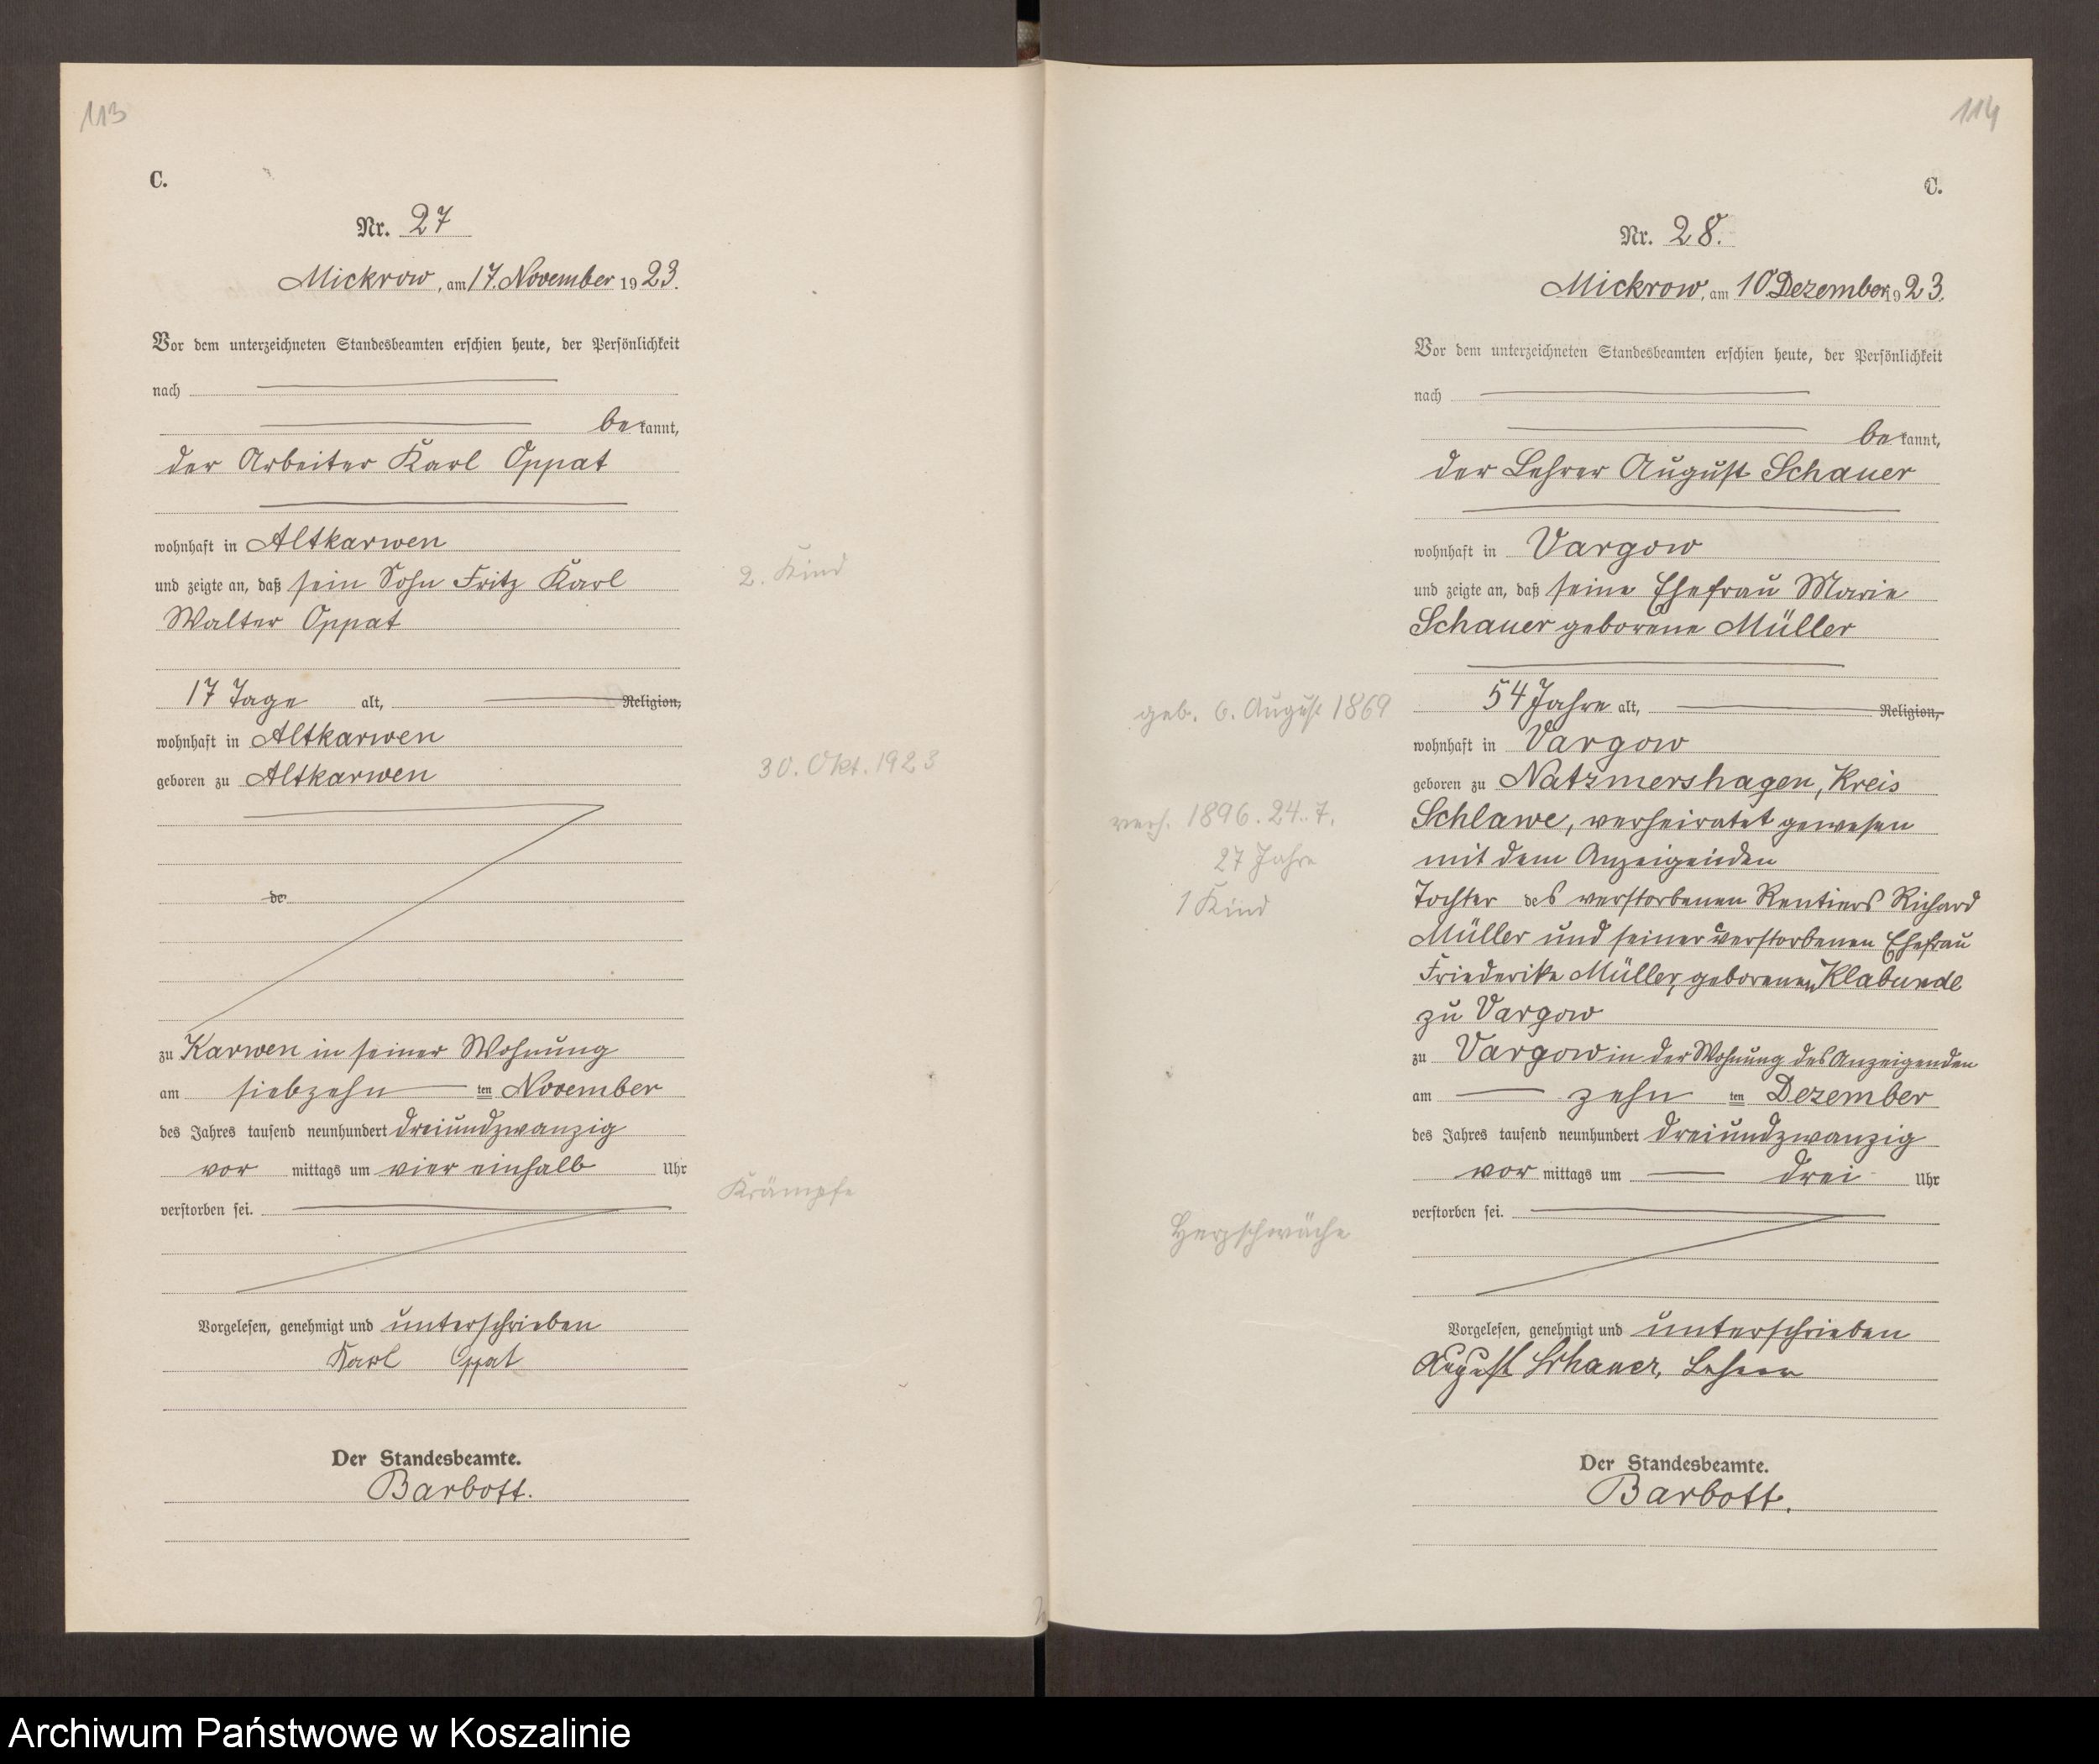 113
C.
Nr. 27
Mickrow, am 17. November 1923.
Vor dem unterzeichneten Standesbeamten erschien heute, der Persönlichkeit
nach
bekannt,
der Arbeiter Karl Oppat
wohnhaft in Altkarwen
und zeigte an, daß sein Sohn Fritz Karl
Walter Oppat
2. Kind
17 Tage alt, Religion,
wohnhaft in Altkarwen
geboren zu Altkarwen
30. Okt. 1923
de
zu Karwen in seiner Wohnung
am siebzehn ten November
des Jahres tausend neunhundert dreiundzwanzig
vor mittags um vier einhalb Uhr
verstorben sei.
Krämpfe
Vorgelesen, genehmigt und unterschrieben
Karl Oppat
Der Standesbeamte.
Barbott.
114
C.
Nr. 28.
Mickrow, am 10 Dezember 1923.
Vor dem unterzeichneten Standesbeamten erschien heute, der Persönlichkeit
nach
bekannt,
der Lehrer August Schauer
wohnhaft in Vargow
und zeigte an, daß seine Ehefrau Marie
Schauer geborene Müller
54 Jahre alt, Religion,
geb. 6. August 1869
wohnhaft in Vargow
geboren zu Natzmershagen, Kreis
Schlawe, verheiratet gewesen
mit dem Anzeigenden
verh. 1896. 24. 7.
27 Jahre
1 Kind
Tochter des verstorbenen Rentiers Richard
Müller und seiner verstorbenen Ehefrau
Friederike Müller, geborenen Klabunde
zu Vargow
zu Vargow in der Wohnung des Anzeigenden
am zehn ten Dezember
des Jahres tausend neunhundert dreiundzwanzig
vor mittags um drei Uhr
verstorben sei.
Herzschwäche
Vorgelesen, genehmigt und unterschrieben
August Schauer, Lehrer
Der Standesbeamte.
Barbott.
Archiwum Państwowe w Koszalinie